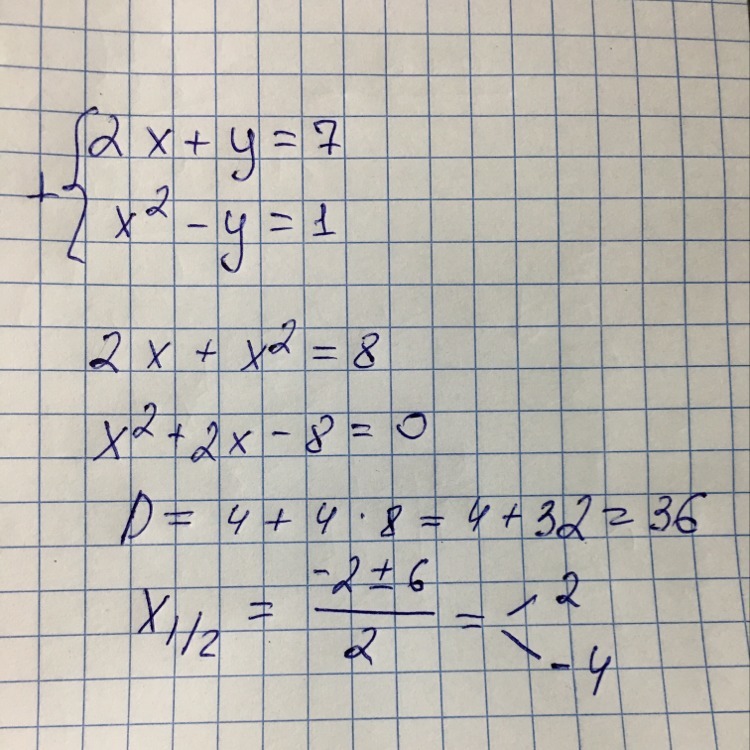 + { 2x + y = 7
x² - y = 1
2x + x² = 8
x² + 2x - 8 = 0
D = 4 + 4 · 8 = 4 + 32 = 36
x₁/₂ = (-2 ± 6)/2 = 2
-4